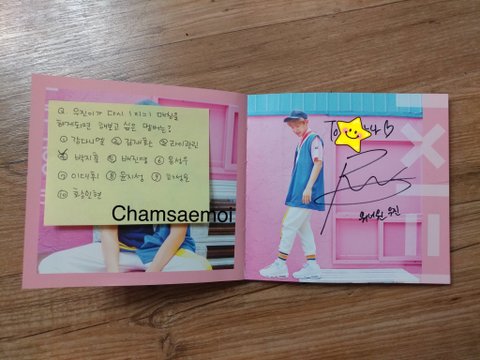 Q. 우진이가 다시 1지1 매칭을
하게되면 해보고 싶은 멤버는?
① 강다니엘 ② 김재환 ③ 라이관린
④ 박지훈 ⑤ 배진영 ⑥ 옹성우
⑦ 이대휘 ⑧ 윤지성 ⑨ 하성운
⑩ 황민현
Chamsaemoi
To
워너원 우진